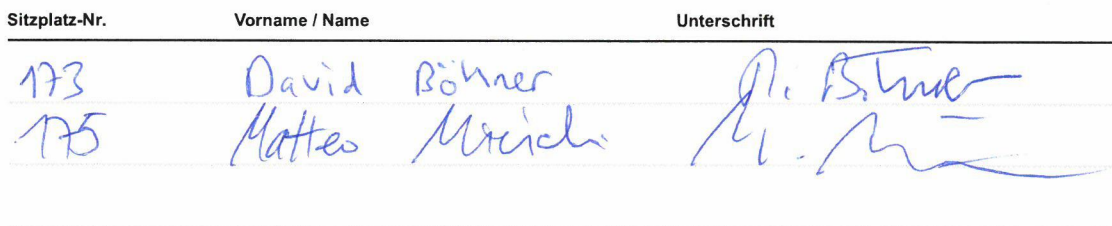 Sitzplatz-Nr. Vorname / Name Unterschrift
173 David Böhner D. Böhner
175 Matteo M.